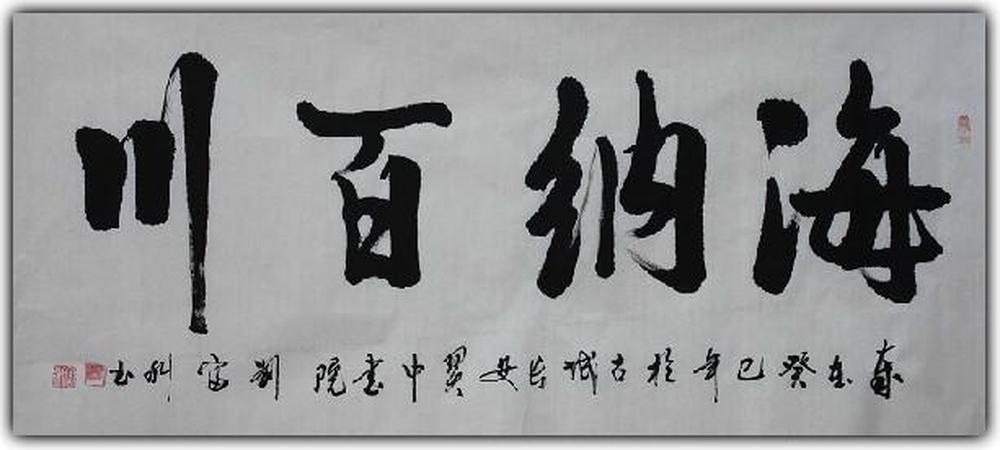 海纳百川
岁在癸巳年於古城长安翼中书院刘富科书